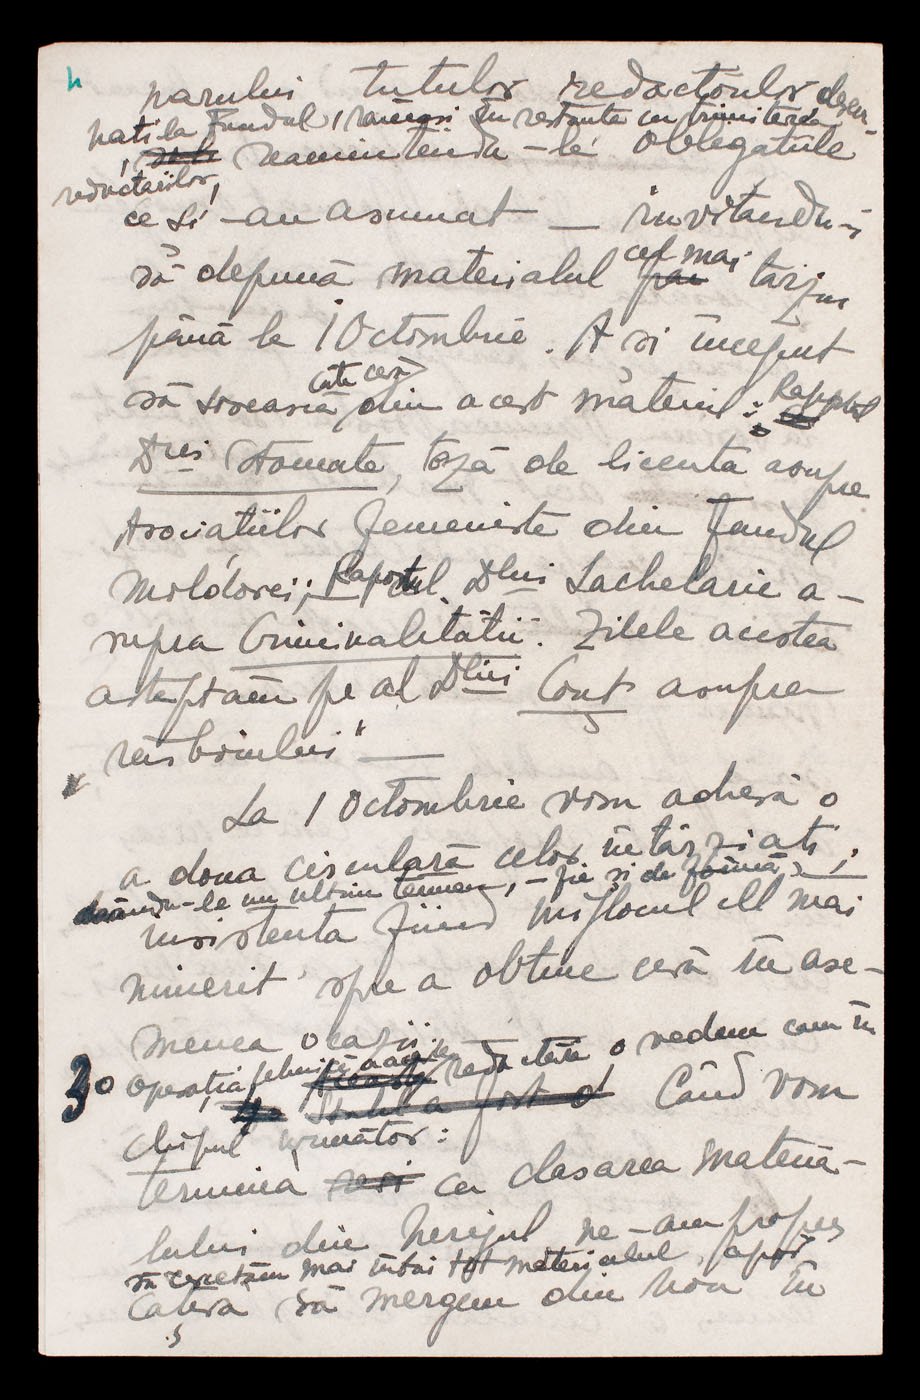 tutulor redactorilor
la Fundul, rămași în restanta cu trimiterea
reamintindu-le obligațiile
redactărilor,
ce și-au asumat — invitându-i
să depună materialul cel mai târziu
până la 1 Octombrie. A și început
să sosească câte ceva din acest material: Raportul
Drei Stomate, teză de licenta asupra
Asociatiilor femeniste din Fundul
Moldovei; Raportul Dlui Lachelarie a-
supra Criminalitătii. Zilele acestea
asteptăm pe al Dlui Conț asupra
"răsboiului" —
La 1 Octombrie vom adresă o
a doua circulară celor întârziati,
dându-le un ultim termen, - fie si de formă, -
insistenta fiind mijlocul cel mai
nimerit spre a obtine ceva în ase-
menea ocazii.
3° Operația tehnică a acestei redactări o vedem cam în
chipul următor: Când vom
termina cu clasarea materia-
lului din Nerejul ne-am propus
să cercetăm mai întâi tot materialul, apoi
câțiva să mergem din nou în